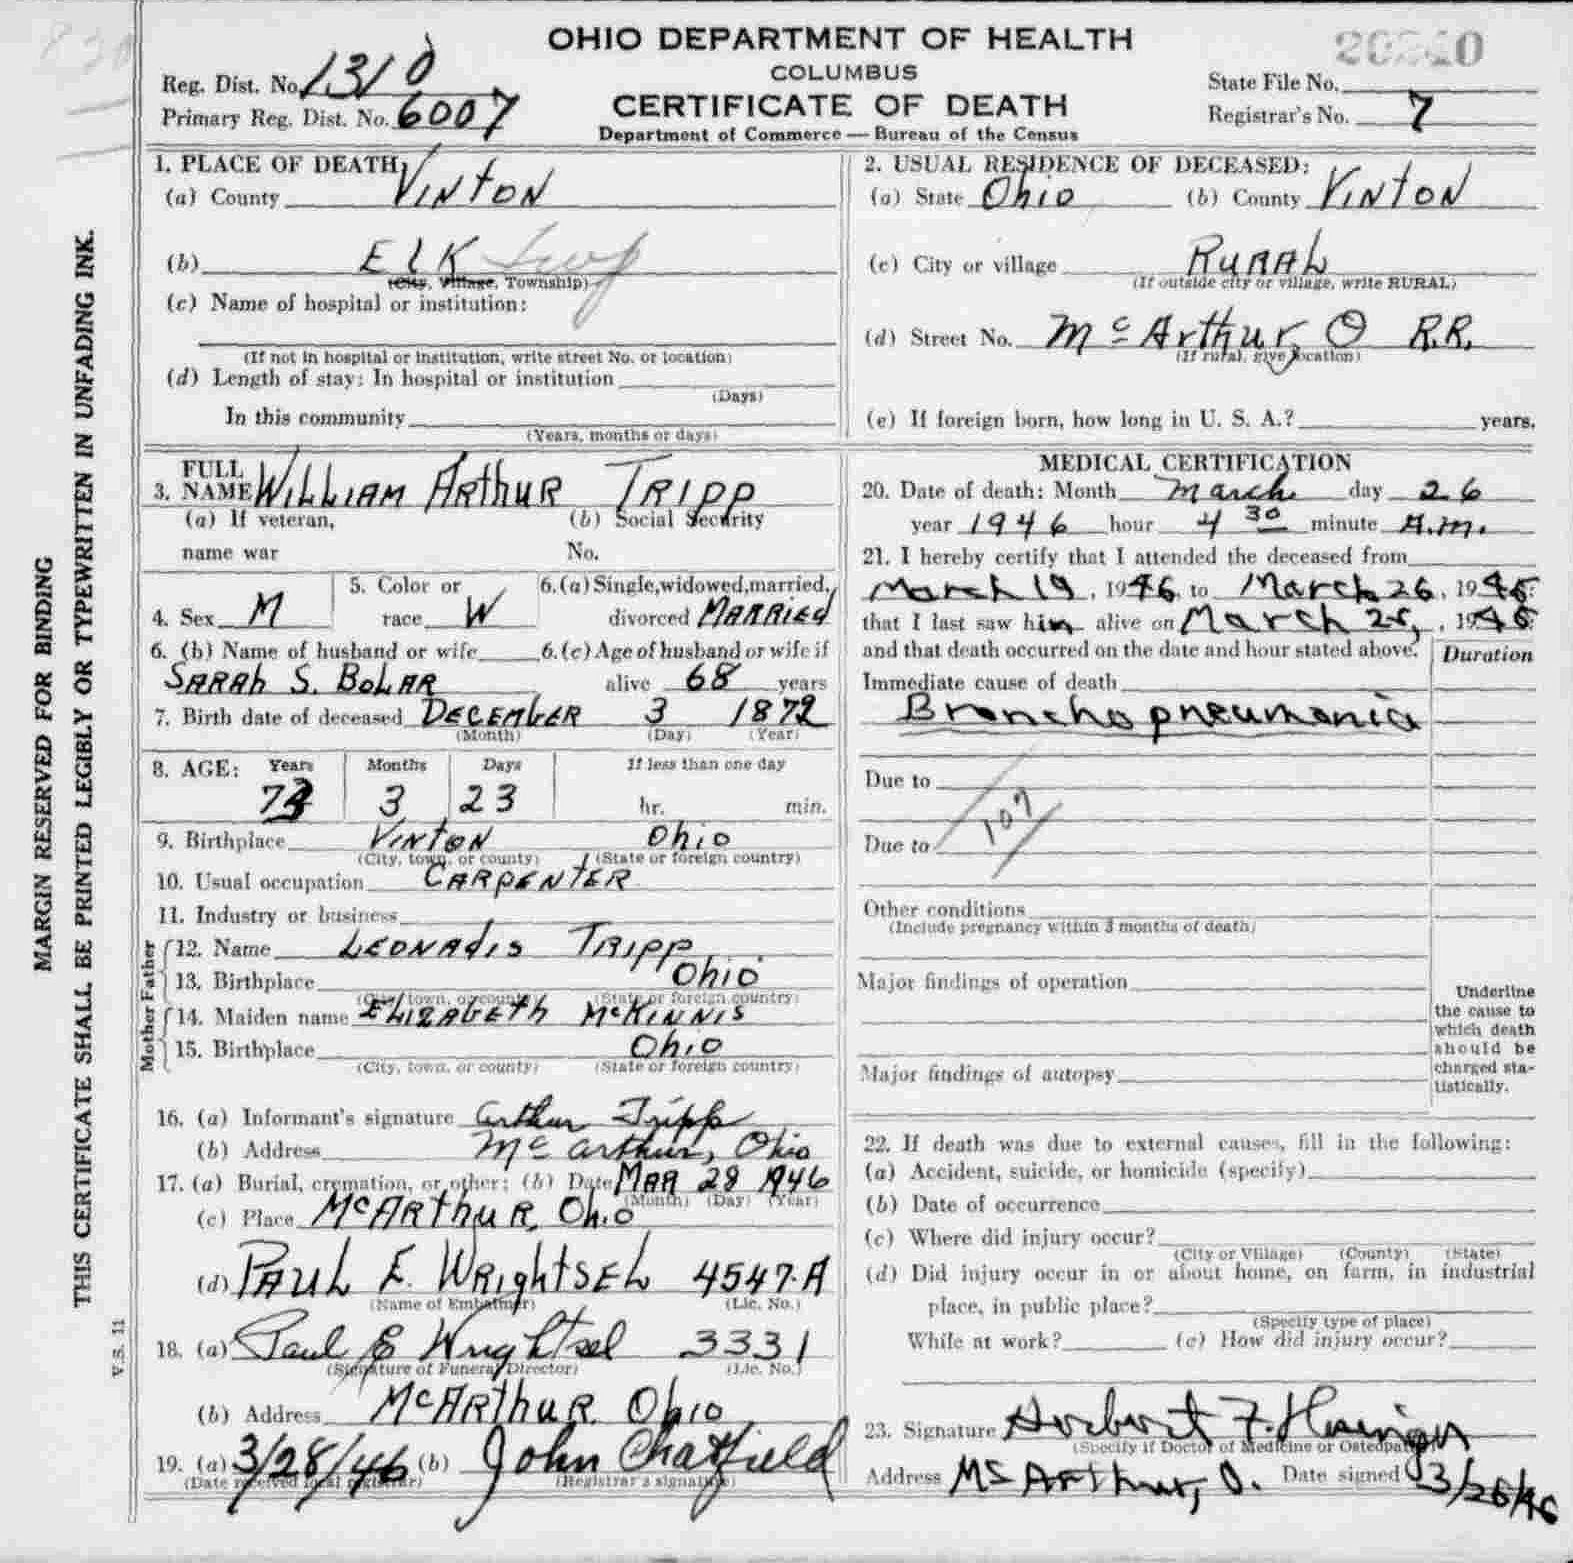 OHIO DEPARTMENT OF HEALTH
COLUMBUS
CERTIFICATE OF DEATH
Department of Commerce — Bureau of the Census
Reg. Dist. No. 1310
Primary Reg. Dist. No. 6007
State File No.
Registrar's No. 7
MARGIN RESERVED FOR BINDING
THIS CERTIFICATE SHALL BE PRINTED LEGIBLY OR TYPEWRITTEN IN UNFADING INK.
V.S. 11
1. PLACE OF DEATH:
(a) County VINTON
(b) ELK Twp
(City, Village, Township)
(c) Name of hospital or institution:
(If not in hospital or institution, write street No. or location)
(d) Length of stay: In hospital or institution
(Days)
In this community
(Years, months or days)
2. USUAL RESIDENCE OF DECEASED:
(a) State Ohio (b) County VINTON
(c) City or village RURAL
(If outside city or village, write RURAL)
(d) Street No. McArthur, O R.R.
(If rural, give location)
(e) If foreign born, how long in U. S. A.? years.
3. FULL NAME WILLIAM ARTHUR TRIPP
(a) If veteran, name war
(b) Social Security No.
4. Sex M
5. Color or race W
6. (a) Single, widowed, married, divorced MARRIED
6. (b) Name of husband or wife
SARAH S. BOLAR
6. (c) Age of husband or wife if alive 68 years
7. Birth date of deceased DECEMBER 3 1872
(Month) (Day) (Year)
8. AGE: Years Months Days If less than one day
73 3 23 hr. min.
9. Birthplace VINTON Ohio
(City, town, or county) (State or foreign country)
10. Usual occupation CARPENTER
11. Industry or business
Father
12. Name LEONADIS TRIPP
13. Birthplace Ohio
(City, town, or county) (State or foreign country)
Mother
14. Maiden name ELIZABETH McKINNIS
15. Birthplace Ohio
(City, town, or county) (State or foreign country)
16. (a) Informant's signature Arthur Tripp
(b) Address McArthur, Ohio
17. (a) Burial, cremation, or other; (b) Date MAR 28 1946
(Month) (Day) (Year)
(c) Place McARTHUR, Ohio
(d) PAUL E. WRIGHTSEL 4547-A
(Name of Embalmer) (Lic. No.)
18. (a) Paul E Wrightsel 3331
(Signature of Funeral Director) (Lic. No.)
(b) Address McARTHUR Ohio
19. (a) 3/28/46 (b) John Chatfield
(Date received local registrar) (Registrar's signature)
MEDICAL CERTIFICATION
20. Date of death: Month March day 26
year 1946 hour 4 30 minute A.m.
21. I hereby certify that I attended the deceased from
March 19, 1946, to March 26, 1946
that I last saw him alive on March 25, 1946
and that death occurred on the date and hour stated above.
Duration
Immediate cause of death
Bronchopneumonia
Due to
107
Due to
Other conditions
(Include pregnancy within 3 months of death)
Major findings of operation
Major findings of autopsy
Underline the cause to which death should be charged statistically.
22. If death was due to external causes, fill in the following:
(a) Accident, suicide, or homicide (specify)
(b) Date of occurrence
(c) Where did injury occur?
(City or Village) (County) (State)
(d) Did injury occur in or about home, on farm, in industrial
place, in public place?
(Specify type of place)
While at work? (e) How did injury occur?
23. Signature Herbert F.
(Specify if Doctor of Medicine or Osteopathy)
Address McArthur, O. Date signed 3/26/46